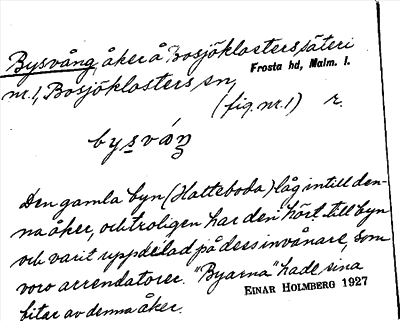 Bysvång, åker å Bosjöklosters säteri
Frosta hd, Malm. l.
nr. 1, Bosjöklosters sn,
(fig. nr. 1) r.
bysvåŋ
Den gamla byn (Hatteboda) låg intill den-
na åker, och troligen har den hört till byn
och varit uppdelad på dess invånare, som
voro arrendatorer. "Byarna" hade sina
bitar av denna åker.
EINAR HOLMBERG 1927